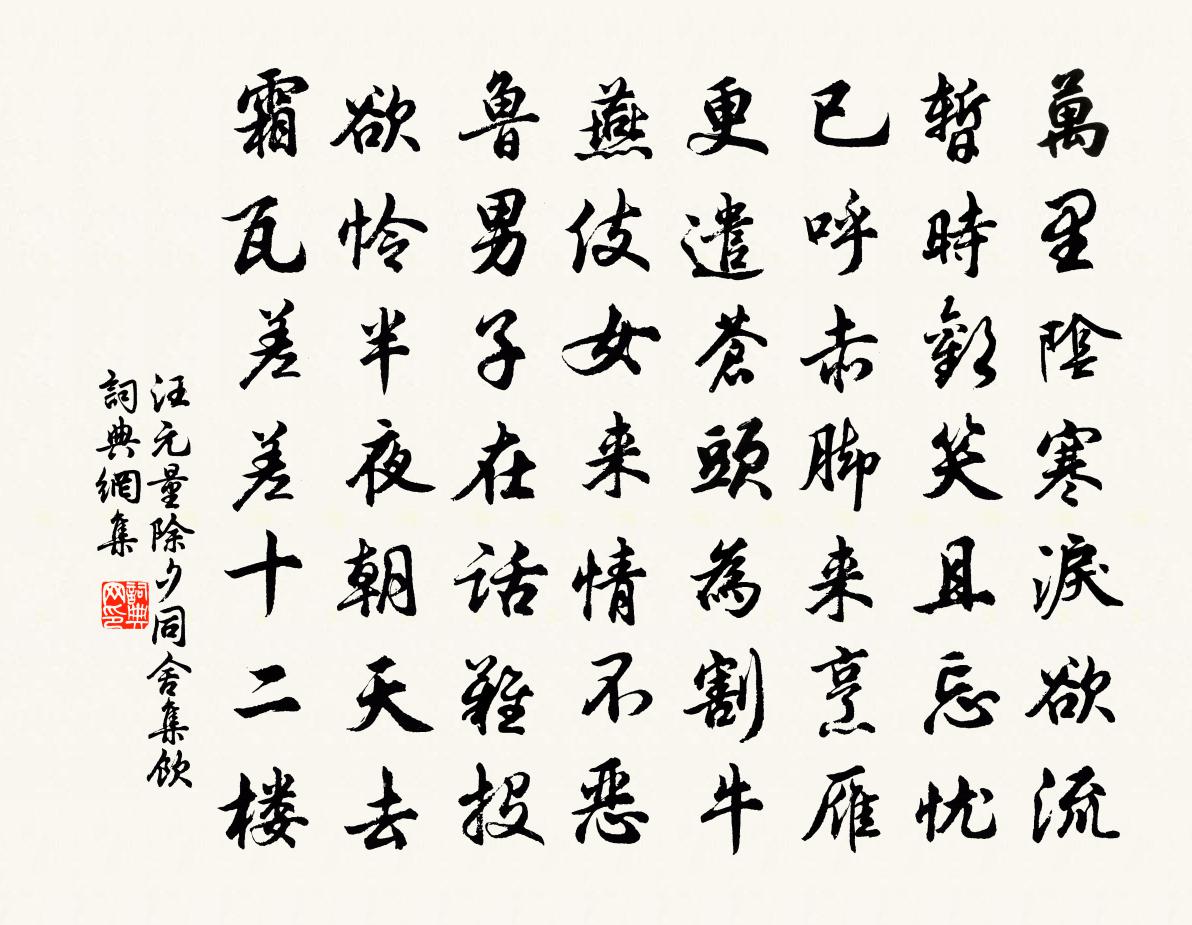 萬里陰寒淚欲流
暫時歡笑且忘忧
已呼赤脚来烹雁
更遣蒼頭為割牛
燕伎女来情不恶
魯男子在話難投
欲怜半夜朝天去
霜瓦差差十二楼
汪元量除夕同舍集飲
詞典網集
詞典网印